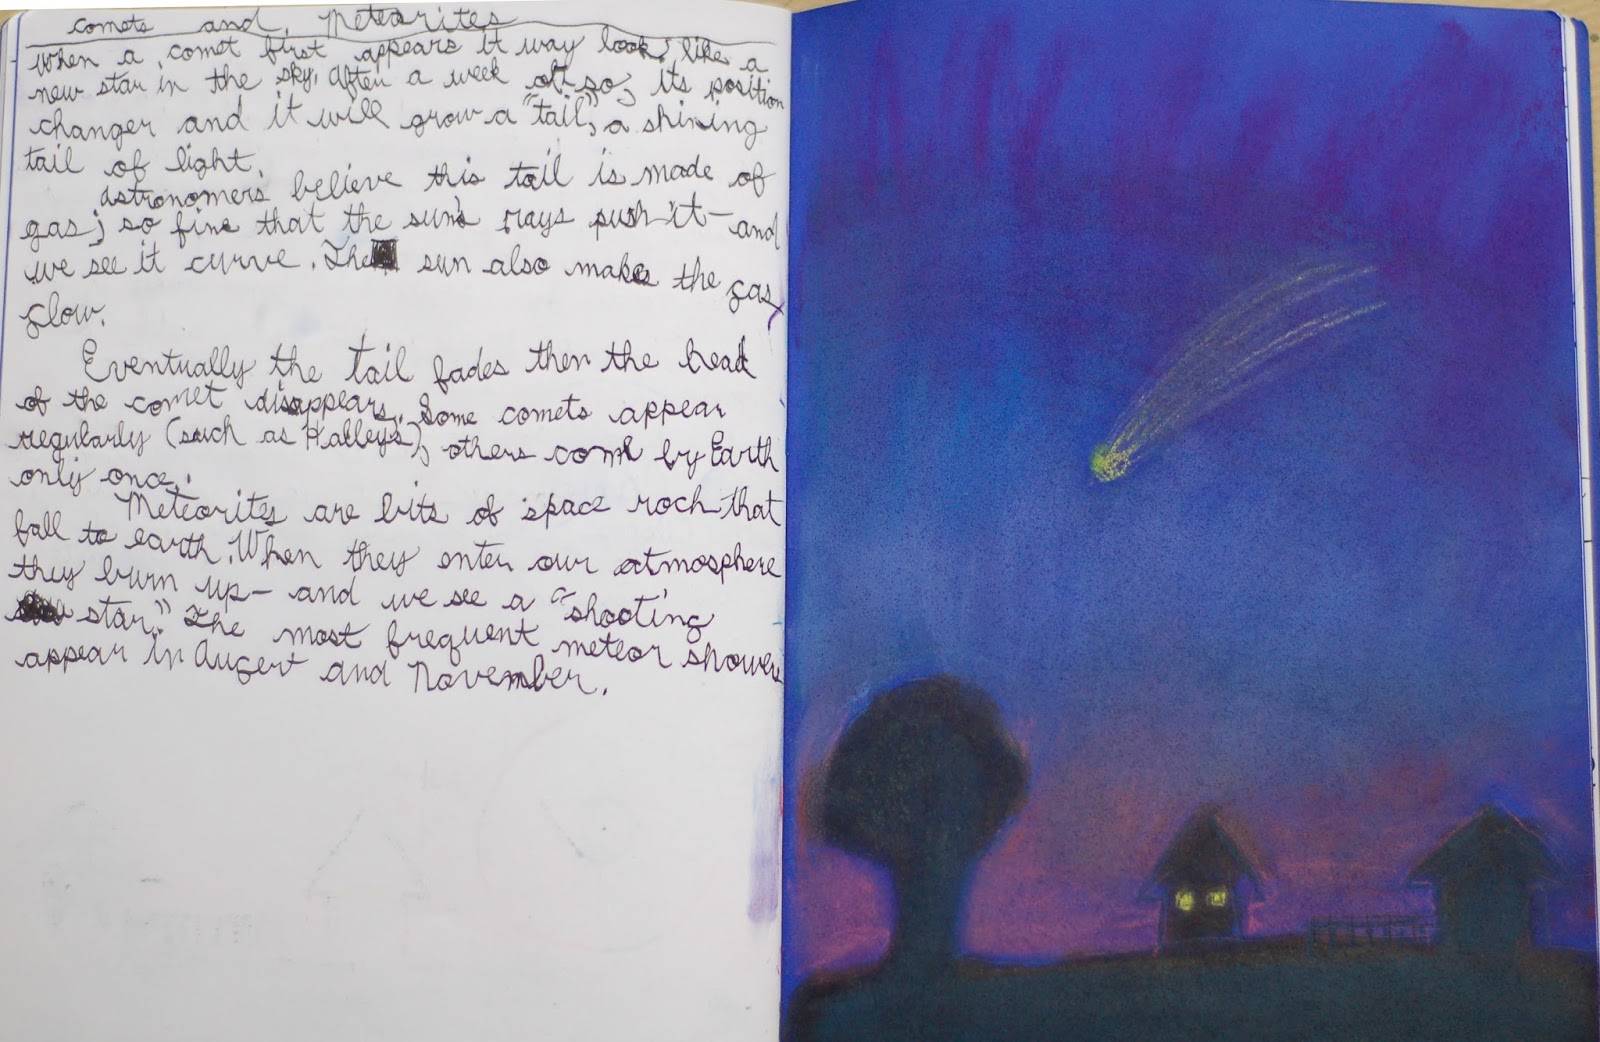 comets and Meteorites
When a comet first appears it way look like a
new star in the sky. After a week or so, its position
changer and it will grow a "tail", a shining
tail of light.
Astronomers believe this tail is made of
gas; so fine that the sun's rays push it — and
we see it curve. The sun also makes the gas
glow.
Eventually the tail fades then the head
of the comet disappears. Some comets appear
regularly (such as Halley's), others come by Earth
only once.
Meteorites are bits of space rock that
fall to earth. When they enter our atmosphere
they burn up — and we see a "shooting
star." The most frequent meteor showers
appear in Augert and November.